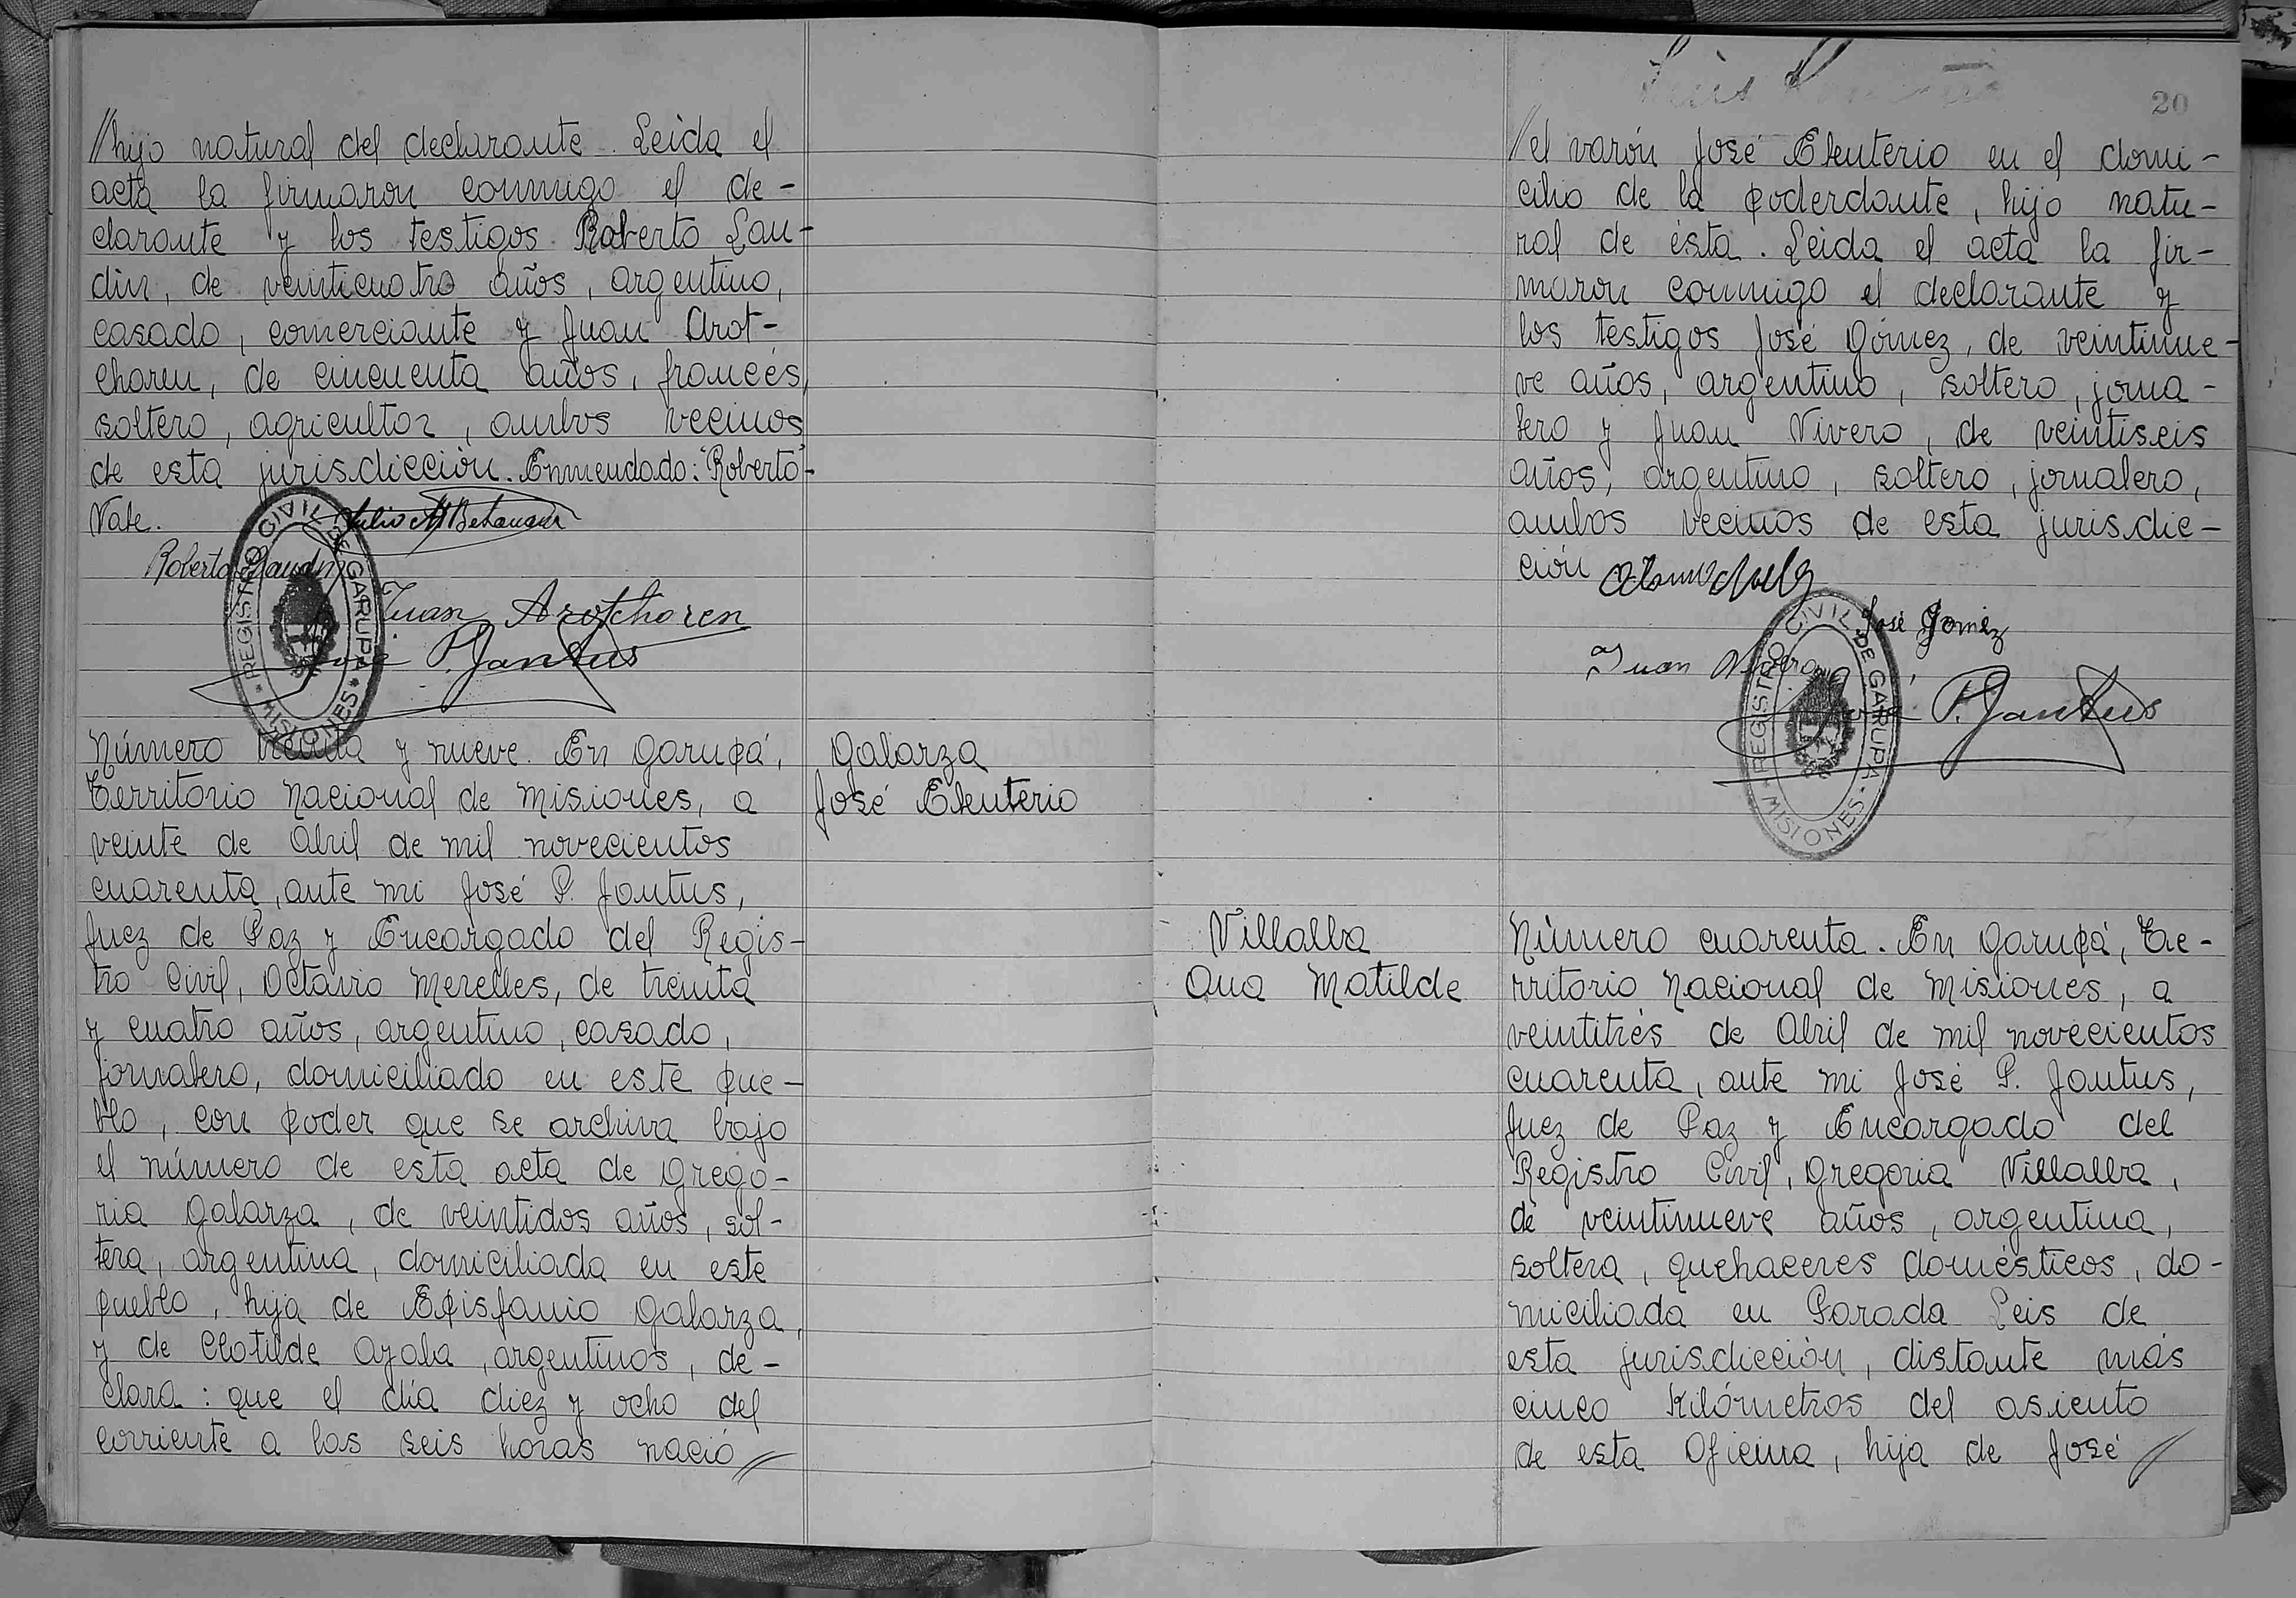 //hijo natural del declarante. Leida el
acta la firmaron conmigo el de-
clarante y los testigos Roberto Lan-
din, de veinticuatro años, argentino,
casado, comerciante y Juan Arot-
charen, de cincuenta años, francés,
soltero, agricultor, ambos vecinos
de esta jurisdicción. Enmendado: "Roberto"-
Vale.
Roberto Landin
Juan Arotcharen
José P. Jantus
REGISTRO CIVIL DE GARUPA
* MISIONES *
Número treinta y nueve. En Garupá,
Territorio Nacional de Misiones, a
veinte de Abril de mil novecientos
cuarenta, ante mi José P. Jantus,
Juez de Paz y Encargado del Regis-
tro Civil, Octavio Merelles, de treinta
y cuatro años, argentino, casado,
jornalero, domiciliado en este pue-
blo, con poder que se archiva bajo
el número de esta acta de Grego-
ria Galarza, de veintidos años, sol-
tera, argentina, domiciliada en este
pueblo, hija de Episfanio Galarza,
y de Clotilde Ayala, argentinos, de-
clara: que el día diez y ocho del
corriente a las seis horas nació //
Galarza
José Eleuterio
20
//el varón José Eleuterio en el domi-
cilio de la poderdante, hijo natu-
ral de ésta. Leida el acta la fir-
maron conmigo el declarante y
los testigos José Gómez, de veintinue-
ve años, argentino, soltero, jorna-
lero y Juan Vivero, de veintiseis
años, argentino, soltero, jornalero,
ambos vecinos de esta jurisdic-
ción
José Gomez
Juan Vivero
P. Jantus
REGISTRO CIVIL DE GARUPA
* MISIONES *
Villalba
Ana Matilde
Número cuarenta. En Garupá, Te-
rritorio Nacional de Misiones, a
veintitrés de Abril de mil novecientos
cuarenta, ante mi José P. Jantus,
Juez de Paz y Encargado del
Registro Civil, Gregoria Villalba,
de veintinueve años, argentina,
soltera, quehaceres domésticos, do-
miciliada en Parada Leis de
esta jurisdicción, distante más
cinco Kilómetros del asiento
de esta Oficina, hija de José //